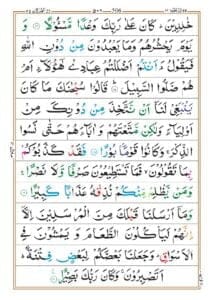 خٰلِدِيْنَ ؕ كَانَ عَلٰى رَبِّكَ وَعْدًا مَّسْـُٔوْلًا
وَ يَوْمَ يَحْشُرُهُمْ وَمَا يَعْبُدُوْنَ مِنْ دُوْنِ اللّٰهِ
فَيَقُوْلُ ءَاَنْتُمْ اَضْلَلْتُمْ عِبَادِيْ هٰٓؤُلَآءِ اَمْ
هُمْ ضَلُّوا السَّبِيْلَ قَالُوْا سُبْحٰنَكَ مَا كَانَ
يَنْۢبَغِيْ لَنَآ اَنْ نَّتَّخِذَ مِنْ دُوْنِكَ مِنْ
اَوْلِيَآءَ وَلٰكِنْ مَّتَّعْتَهُمْ وَاٰبَآءَهُمْ حَتّٰى نَسُوا
الذِّكْرَ ۚ وَكَانُوْا قَوْمًۢا بُوْرًا فَقَدْ كَذَّبُوْكُمْ
بِمَا تَقُوْلُوْنَ ۙ فَمَا تَسْتَطِيْعُوْنَ صَرْفًا وَّلَا نَصْرًا ۚ
وَمَنْ يَّظْلِمْ مِّنْكُمْ نُذِقْهُ عَذَابًا كَبِيْرًا
وَمَآ اَرْسَلْنَا قَبْلَكَ مِنَ الْمُرْسَلِيْنَ اِلَّآ
اِنَّهُمْ لَيَاْكُلُوْنَ الطَّعَامَ وَيَمْشُوْنَ فِي
الْاَسْوَاقِ ؕ وَجَعَلْنَا بَعْضَكُمْ لِبَعْضٍ فِتْنَةً ؕ
اَتَصْبِرُوْنَ ۚ وَكَانَ رَبُّكَ بَصِيْرًا